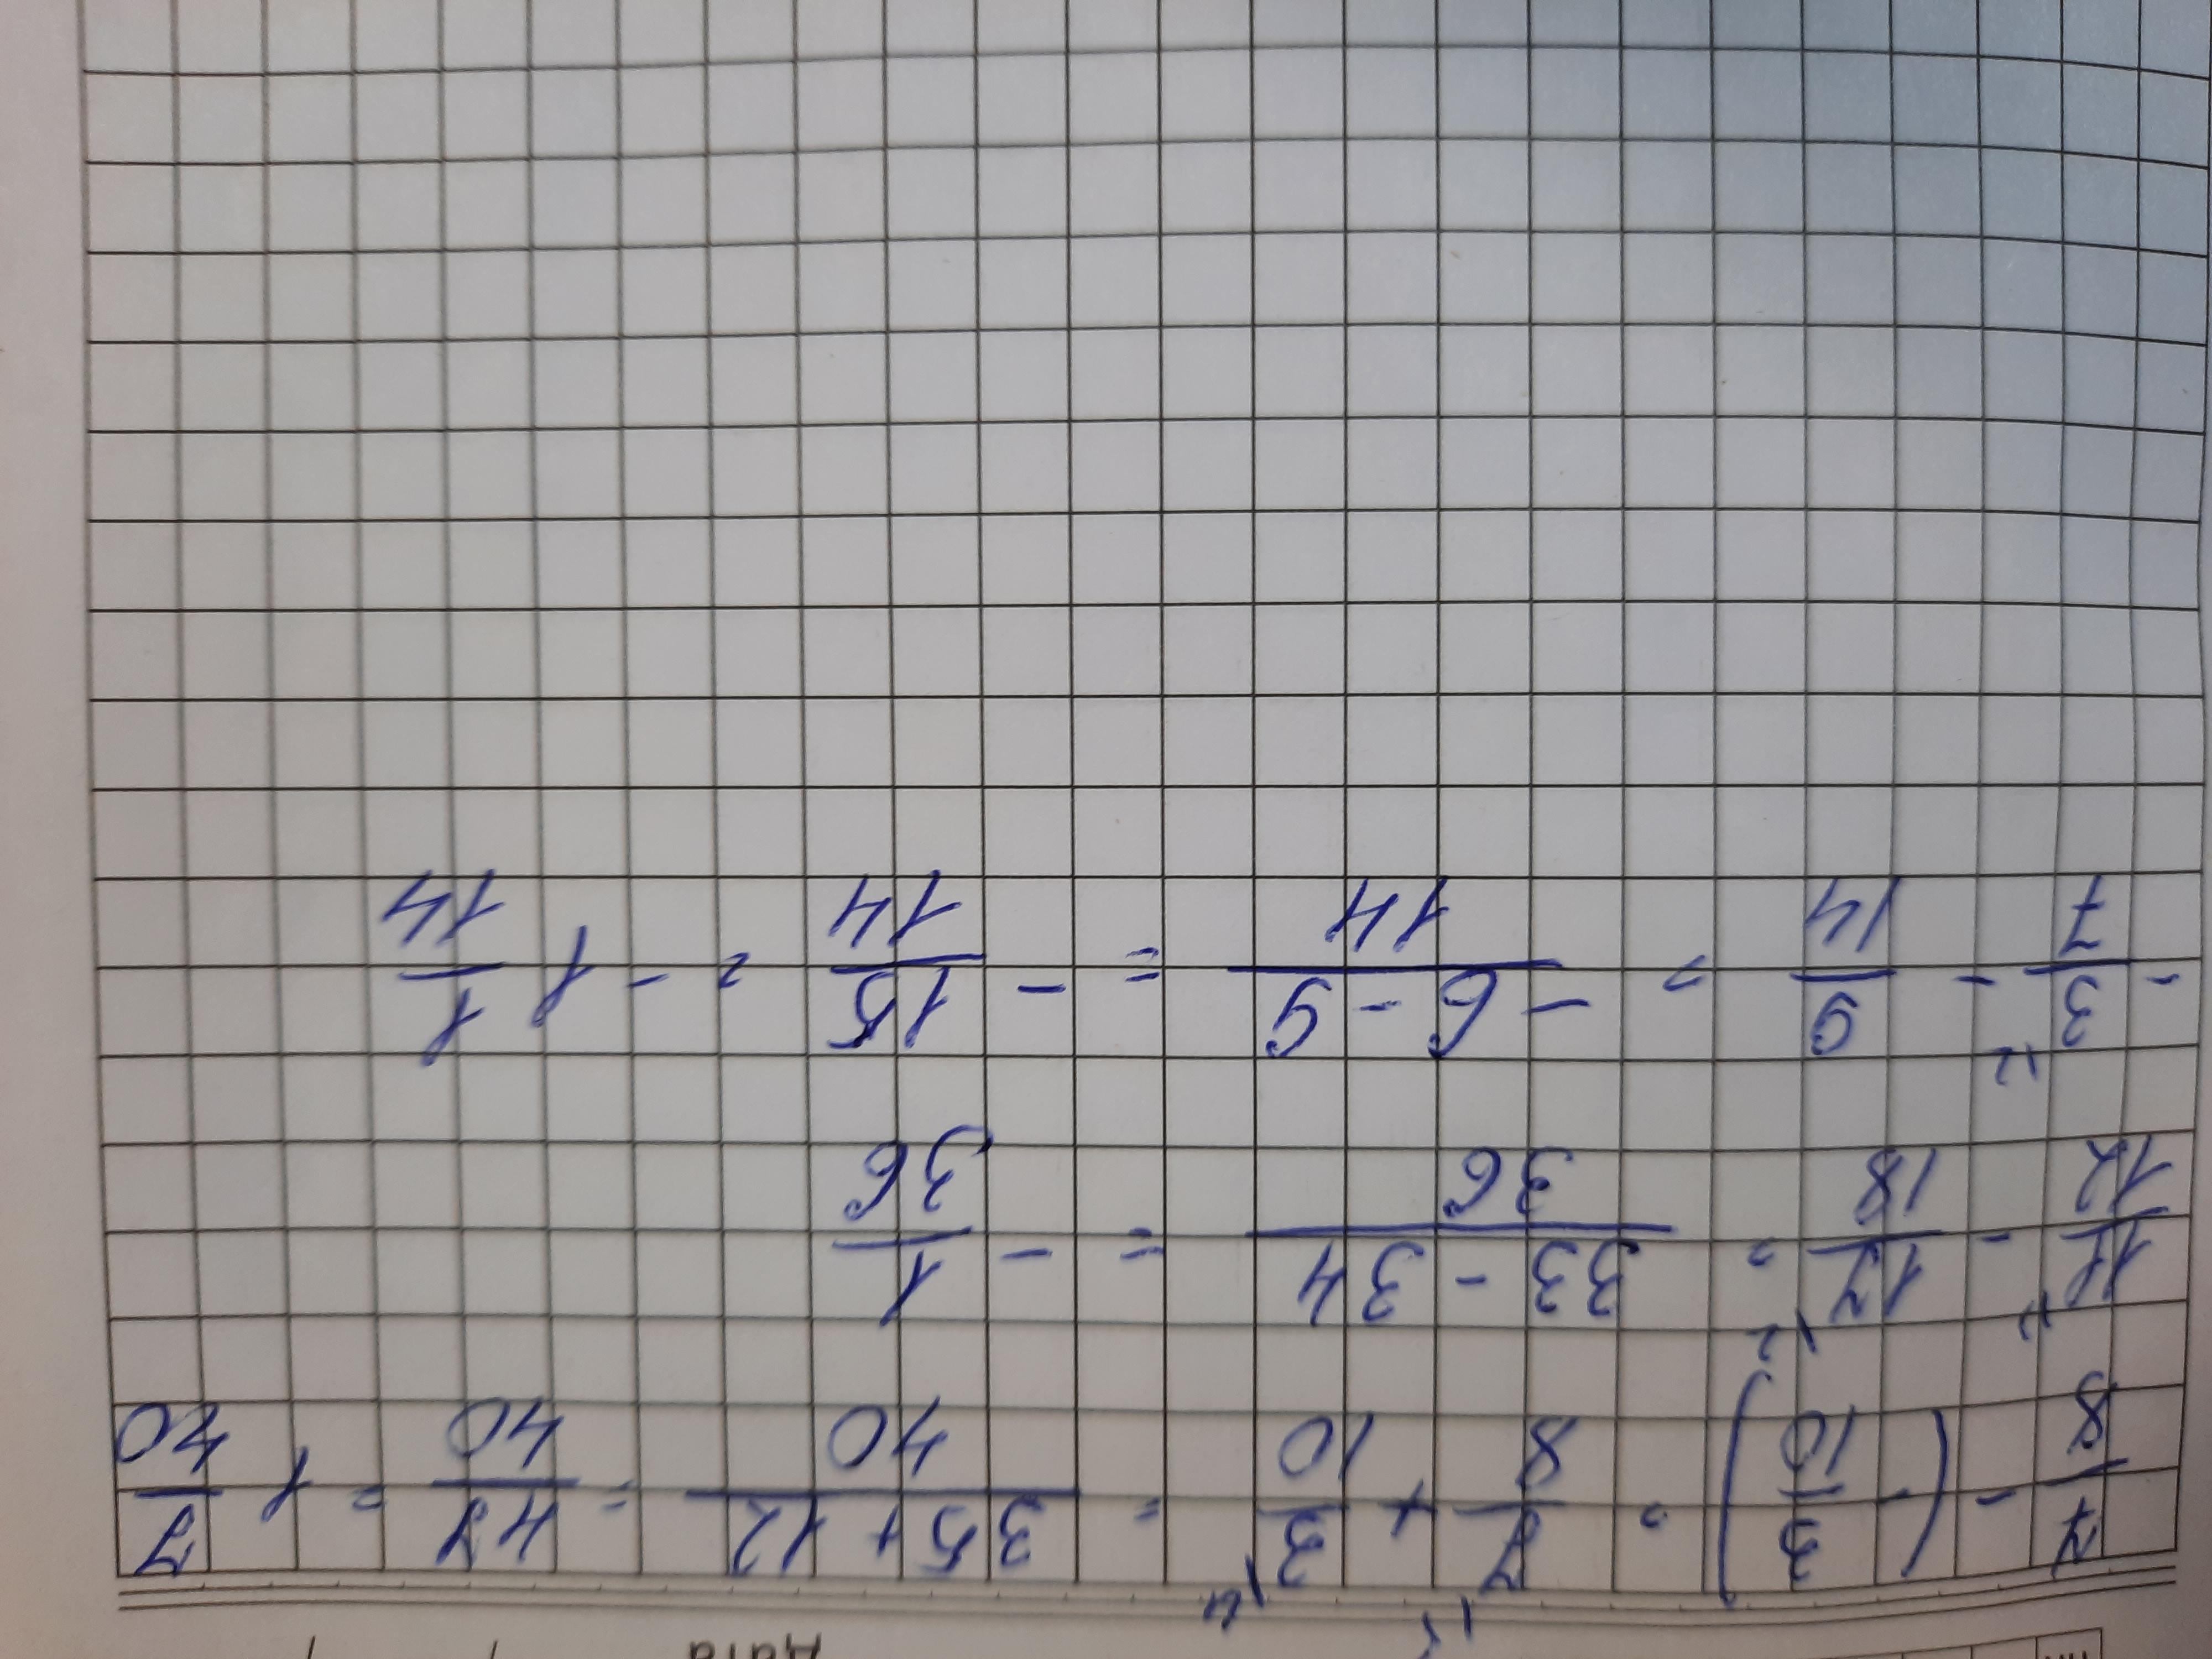 Дата / /
7/8 - (- 3/10) = 7/8 \5 + 3/10 \4 = 35 + 12/40 = 47/40 = 1 7/40
11/12 \3 - 17/18 \2 = 33 - 34/36 = - 1/36
- 3/7 \2 - 9/14 = - 6 - 9/14 = - 15/14 = - 1 1/14